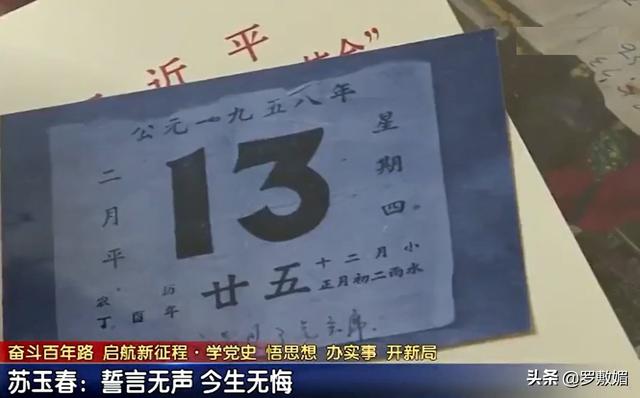 近平
公元一九五八年
二月平
13
星期四
农历
丁酉年
十二月小
廿五
正月初二雨水
主席
奋斗百年路 启航新征程·学党史 悟思想 办实事 开新局
苏玉春：誓言无声 今生无悔
头条 @罗敷媚